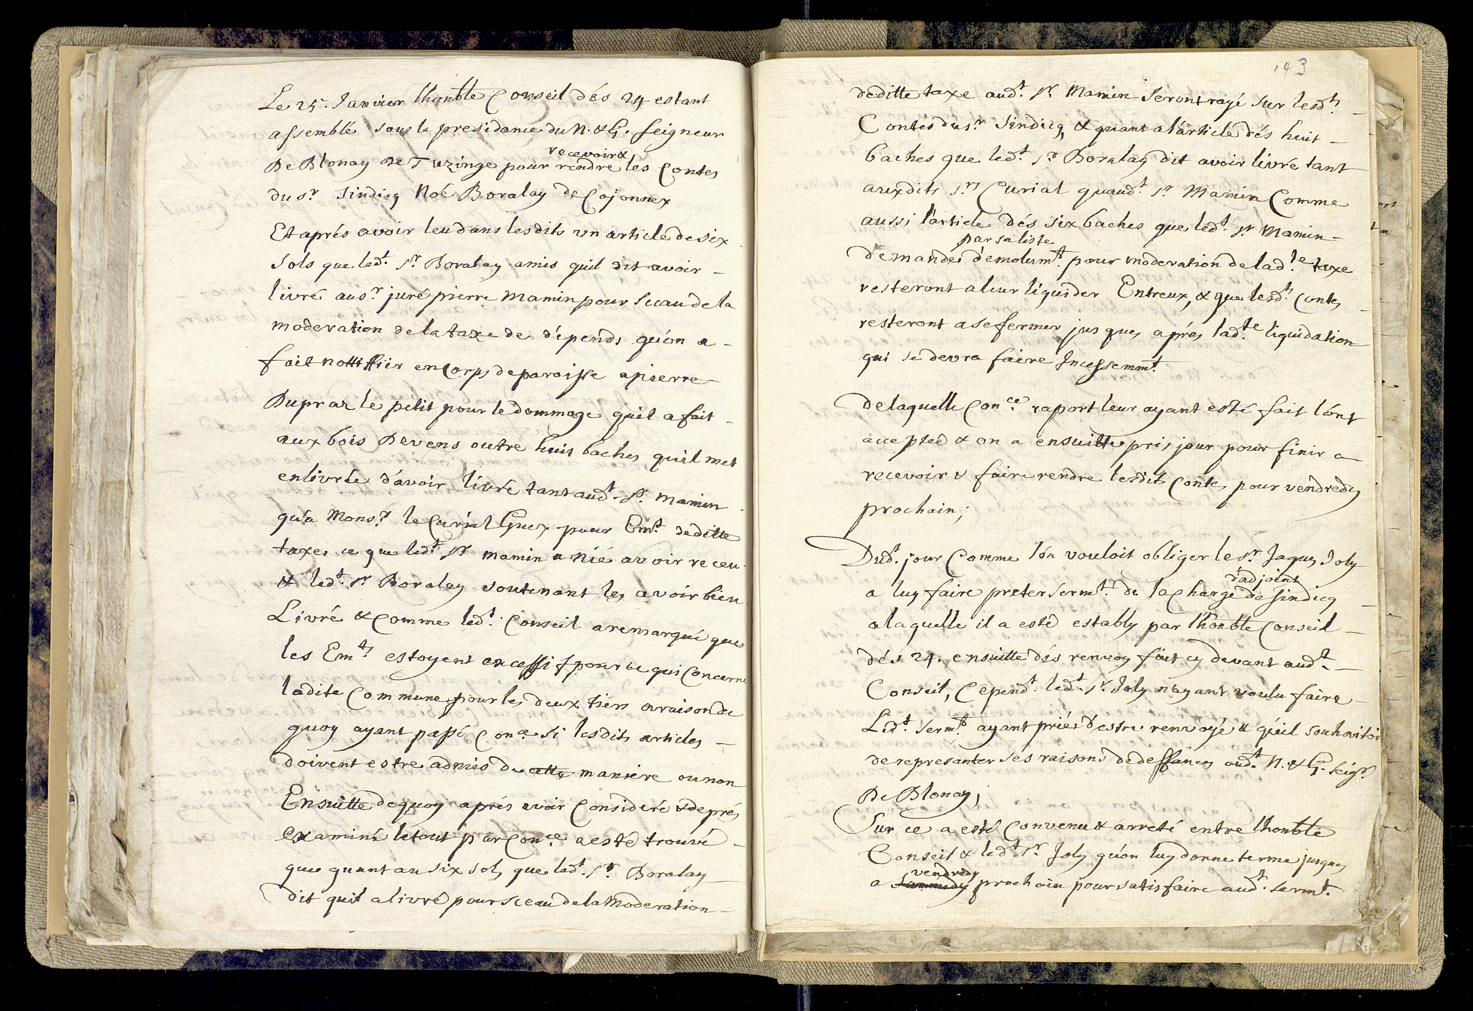 Le 25.e Janvier lhonble Conseil dés 24 estant
assemblé sous la presidance du N. & G. seigneur
De Blonay De Tuzinge pour recevoir & rendre les Contes
du sr. Sindicq Noé Boralay de Cojonnex
Et aprés avoir leu dans lesdits un article de six
sols que led.t s.r Boralay amis quil dit avoir
livré au s.r juré pierre Mamin pour sceau de la
moderation de la taxe de dépends qu'on a
fait nottiffier en Corps de paroisse a pierre
Dupraz le petit pour le dommage quil a fait
aux bois Devens outre huit baches quil met
en livrée d'avoir livré tant aud.t s.r Mamin
qu'a Mons.r le Curial Guex pour Em.t deditte
taxe, ce que led.t s.r mamin a Nié avoir receu
& led.t s.r Boralay soutenant les avoir bien
Livré & Comme led.t Conseil a remarqué que
les Em.ts estoyent excessifs pour ce qui Concerne
ladite Commune pour les deux tiers a raison de
quoy ayant passé Con.ce si lesdits articles
doivent estre admis de cette maniere ou non
Ensuitte dequoy aprés avoir Consideré & de prés
examiné le tout par Con.ce a esté trouvé
que quant au six sols que led.t s.r Boralay
dit quil a livré pour sceau de la Moderation
143
deditte taxe aud.t s.r Mamin seront rayé sur lesd.ts
Contes du s.r Sindicq, & quant a l'article dés huit
baches que led.t s.r Boralay dit avoir livré tant
auxdits s.rs Curial quaud.t s.r Mamin Comme
aussi l'article dés six baches que led.t s.r Mamin
Demandes par sa liste d'émolum.t pour moderation de lad.te taxe
resteront a leur liquider Entreux, & que lesd.ts Contes
resteront a se fermer jusques aprés lad.te liquidation
qui se devra faire Incessemm.t
de laquelle Con.ce raport leur ayant esté fait l'ont
accepted & on a ensuitte pris jour pour finir a
recevoir & faire rendre lesdits Contes pour vendredy
prochain;
Dud.t jour Comme l'on vouloit obliger le s.r Jaques Joly
a luy faire preter serm.t de la Charge d'adjoint de sindicq
a laquelle il a esté estably par lhonble Conseil
dés 24. ensuitte dés renvoy fait cy devant aud.t
Conseil, Cepend.t led.t s.r Joly n'ayant voulu faire
Led.t serm.t ayant prié d'estre renvoyé & quil souhaitoi
de representer ses raisons de deffances aud.t N. & G. seig.r
De Blonay;
Sur ce a esté Convenu & arreté entre lhonble
Conseil & led.t s.r Joly qu'on luy donne terme jusques
a vendredy prochain pour satisfaire aud.t serm.t